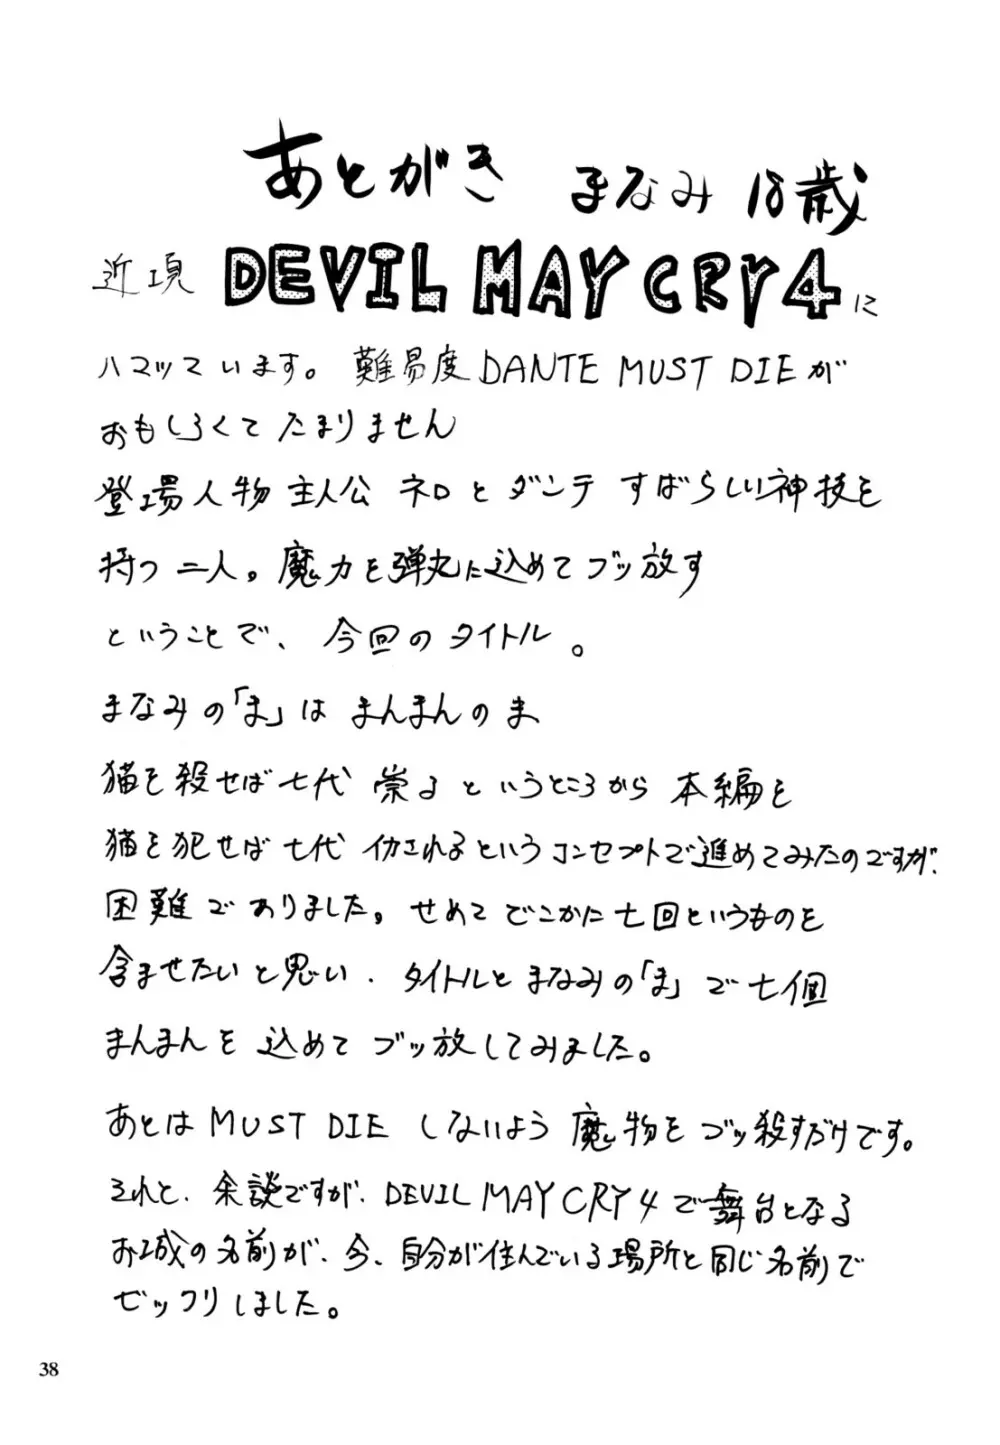 あとがき まなみ 18歳
近頃 DEVIL MAY CRY 4 に
ハマッています。難易度DANTE MUST DIEが
おもしろくてたまりません
登場人物主人公 ネロとダンテ すばらしい神技を
持つ二人。魔力を弾丸に込めてブッ放す
ということで、今回のタイトル。
まなみの「ま」は まんまんのま
猫を殺せば七代 祟るというところから本編を
猫を犯せば七代イカされるというコンセプトで進めてみたのですが、
困難でありました。せめてどこかに七回というものを
含ませたいと思い、タイトルとまなみの「ま」で七個
まんまんを込めてブッ放してみました。
あとはMUST DIE しないよう魔物をブッ殺すだけです。
それと、余談ですが、DEVIL MAY CRY 4で舞台となる
お城の名前が、今、自分が住んでいる場所と同じ名前で
ビックリしました。
38